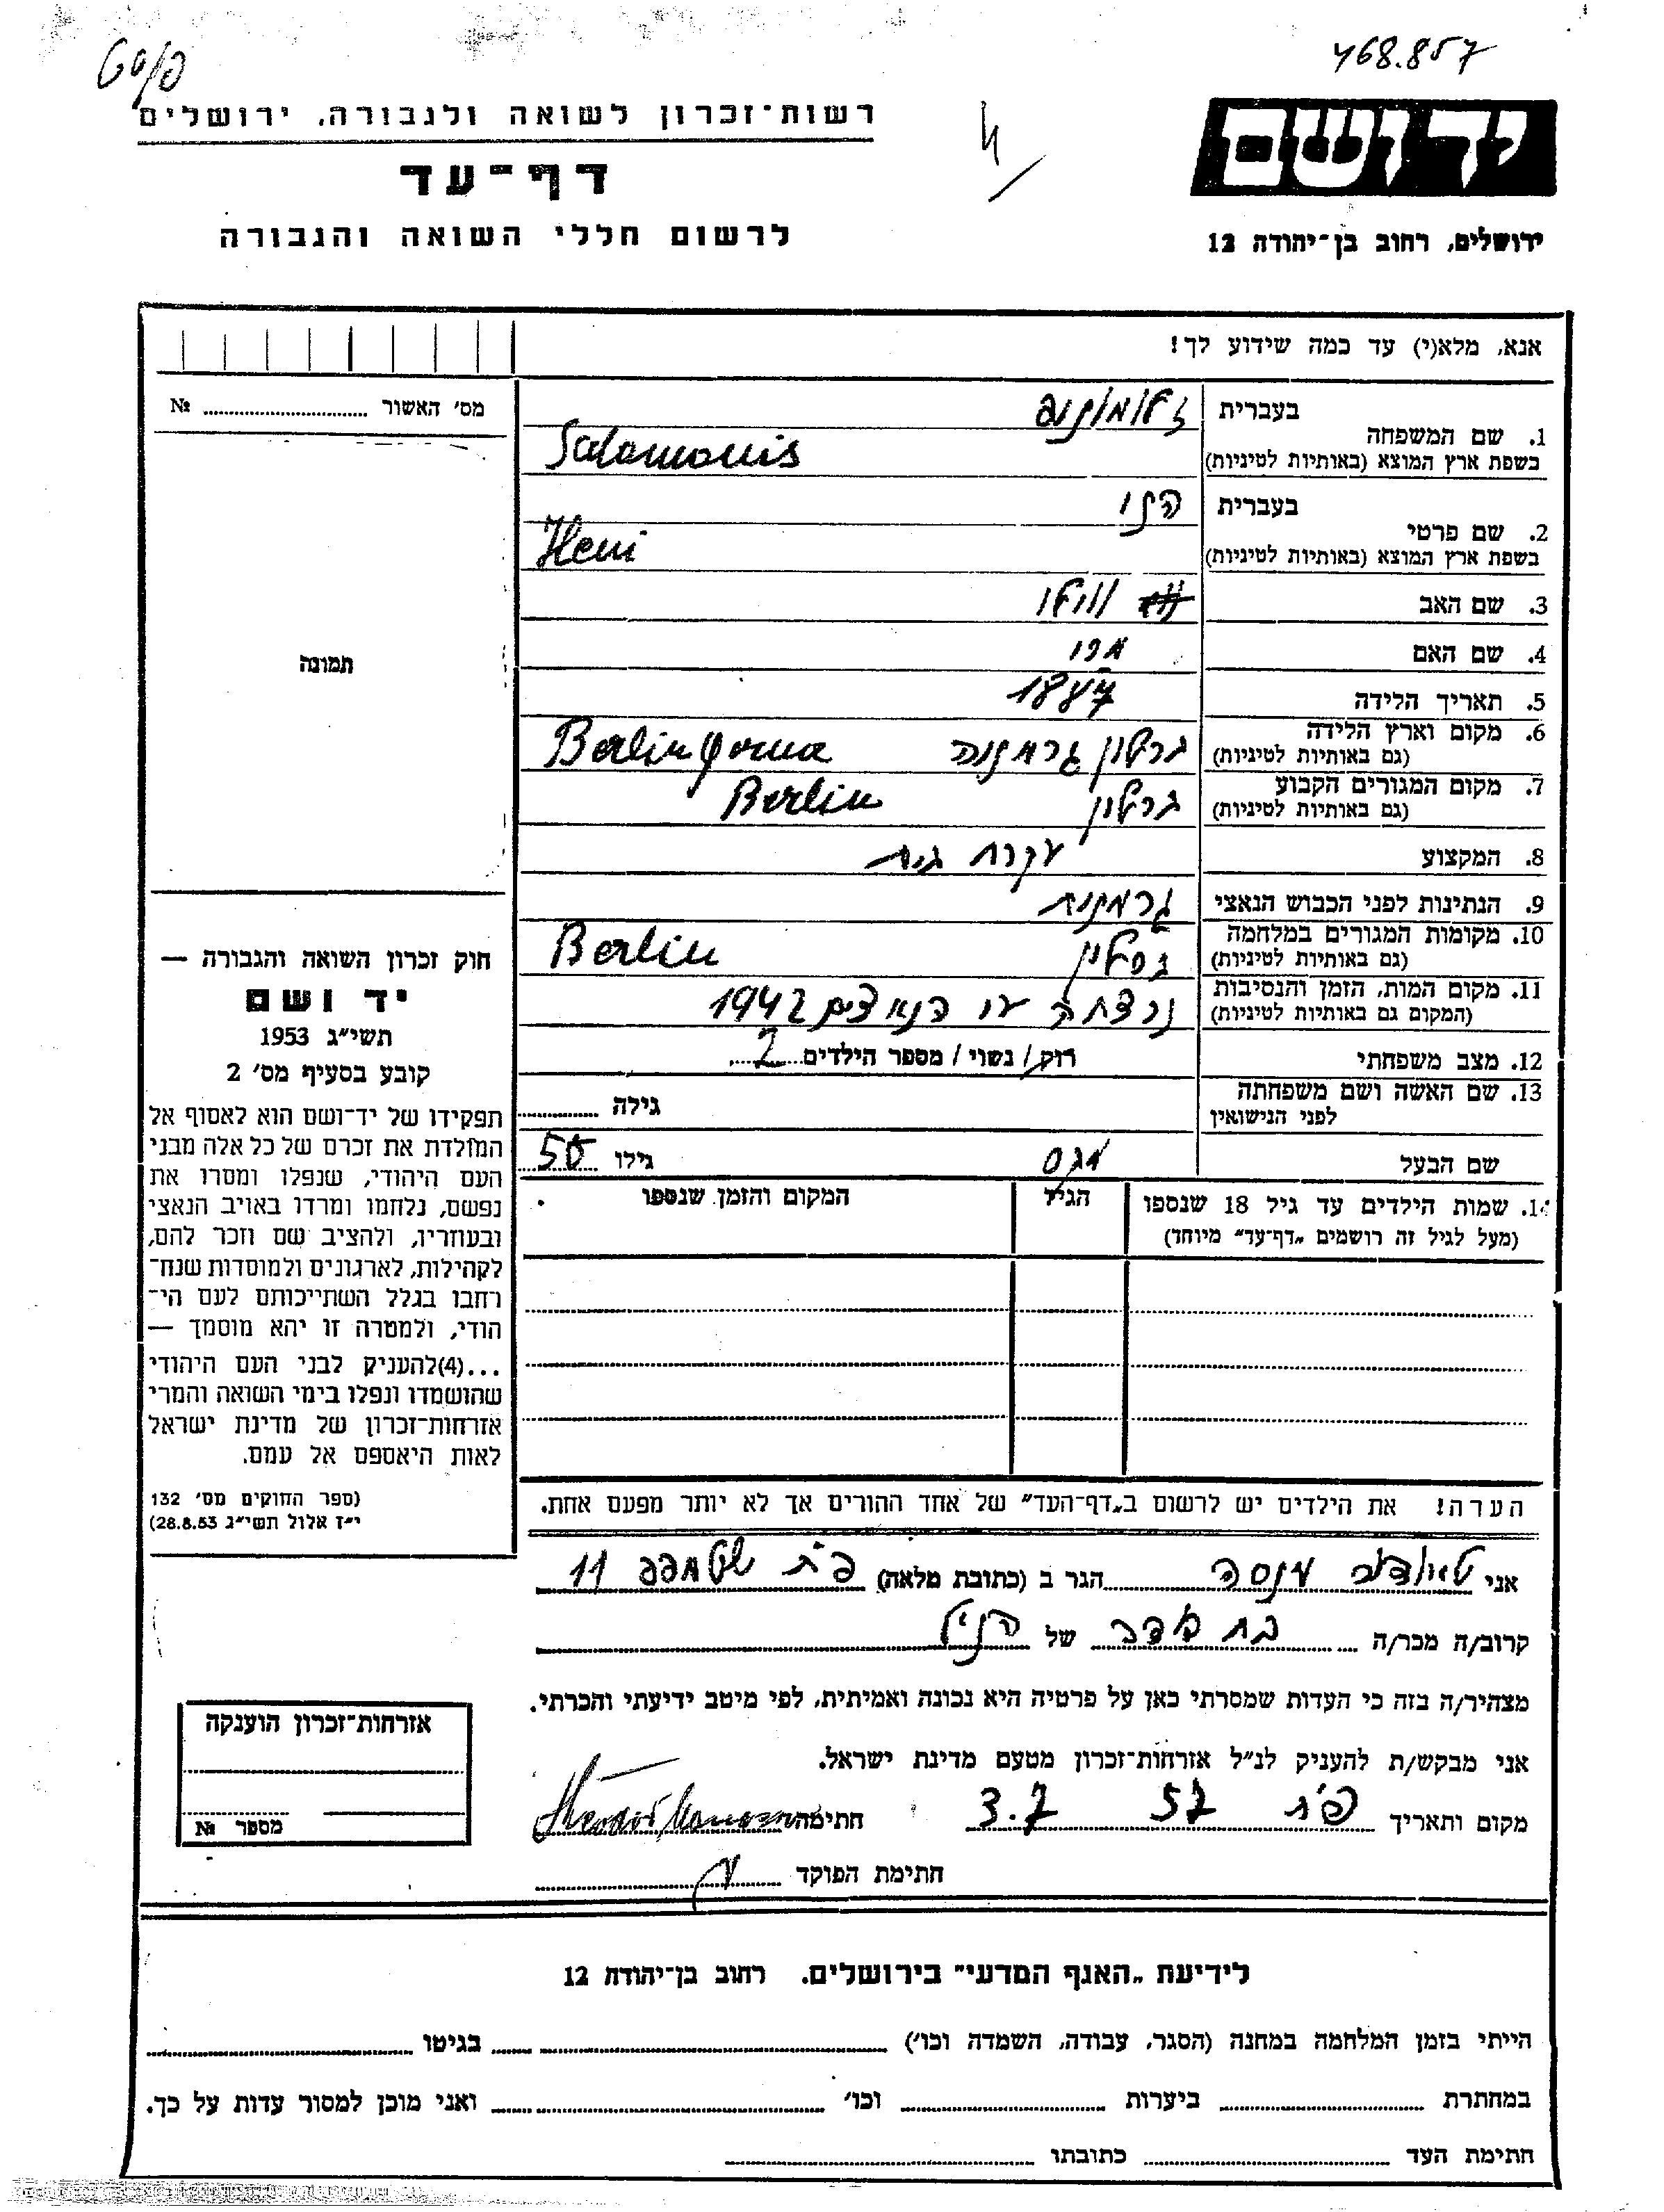 468.857
יד ושם
ירושלים, רחוב בן־יהודה 12
רשות־זכרון לשואה ולגבורה, ירושלים
דף־עד
לרשום חללי השואה והגבורה
אנא, מלא(י) עד כמה שידוע לך!
מס׳ האשור № 
1. שם המשפחה
בעברית
זלומוניס
בשפת ארץ המוצא (באותיות לטיניות)
Salomonis
2. שם פרטי
בעברית
הני
בשפת ארץ המוצא (באותיות לטיניות)
Heni
3. שם האב ווילי
4. שם האם
5. תאריך הלידה 1887
6. מקום וארץ הלידה ברלין גרמניה Berlin
(גם באותיות לטיניות)
7. מקום המגורים הקבוע ברלין Berlin
(גם באותיות לטיניות)
8. המקצוע עקרת בית
9. הנתינות לפני הכבוש הנאצי גרמנית
10. מקומות המגורים במלחמה ברלין Berlin
(גם באותיות לטיניות)
11. מקום המות, הזמן והנסיבות נרצחה ע״י הנאצים 1942
(המקום גם באותיות לטיניות)
12. מצב משפחתי רוק / נשוי / מספר הילדים 2
13. שם האשה ושם משפחתה לפני הנישואין גילה
שם הבעל מכס גילו 50
14. שמות הילדים עד גיל 18 שנספו
(מעל לגיל זה רושמים „דף־עד״ מיוחד)
הגיל
המקום והזמן שנספו
הערה! את הילדים יש לרשום ב„דף־העד״ של אחד ההורים אך לא יותר מפעם אחת.
אני מנסה הגר ב (כתובת מלאה) פ״ת 11
קרוב/ה מכר/ה של הנ״ל
מצהיר/ה בזה כי העדות שמסרתי כאן על פרטיה היא נכונה ואמיתית, לפי מיטב ידיעתי והכרתי.
אני מבקש/ת להעניק לנ״ל אזרחות־זכרון מטעם מדינת ישראל.
מקום ותאריך פ״ת 3.7 57 חתימה
חתימת הפוקד
תמונה
חוק זכרון השואה והגבורה —
יד ושם
תשי״ג 1953
קובע בסעיף מס׳ 2
תפקידו של יד־ושם הוא לאסוף אל
המולדת את זכרם של כל אלה מבני
העם היהודי, שנפלו ומסרו את
נפשם, נלחמו ומרדו באויב הנאצי
ובעוזריו, ולהציב שם וזכר להם,
לקהילות, לארגונים ולמוסדות שנח־
רחבו בגלל השתייכותם לעם הי־
הודי, ולמטרה זו יהא מוסמך —
...(4)להעניק לבני העם היהודי
שהושמדו ונפלו בימי השואה והמרי
אזרחות־זכרון של מדינת ישראל
לאות היאספם אל עמם.
(ספר החוקים מס׳ 132
י״ז אלול תשי״ג 28.8.53)
אזרחות־זכרון הוענקה
מספר №
לידיעת „האגף המדעי״ בירושלים. רחוב בן־יהודה 12
הייתי בזמן המלחמה במחנה (הסגר, עבודה, השמדה וכו׳) בגיטו
במחתרת ביערות וכו׳ ואני מוכן למסור עדות על כך.
חתימת העד כתובתו